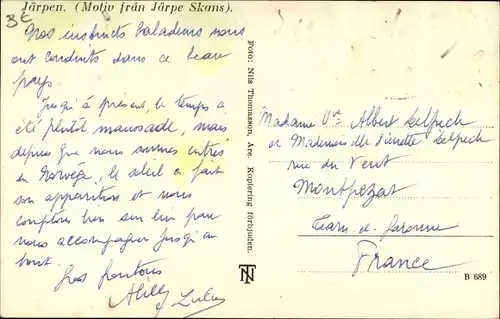 Järpen. (Motiv från Järpe Skans).
Nos instincts baladeurs nous
ont conduits dans ce beau
pays.
Jusqu'à présent, le temps a
été plutôt maussade, mais
depuis que nous sommes entrés
en Norvège, le soleil a fait
son apparition et nous
comptons bien sur lui pour
nous accompagner jusqu'au
bout.
Gros
Lulu
Foto: Nils Thomasson, Åre. Kopiering förbjuden.
Madame Vve Albert Delpech
et Mademoiselle Pierrette Delpech
rue du Vent
Montpezat
Tarn-et-Garonne
France
NT
B 689